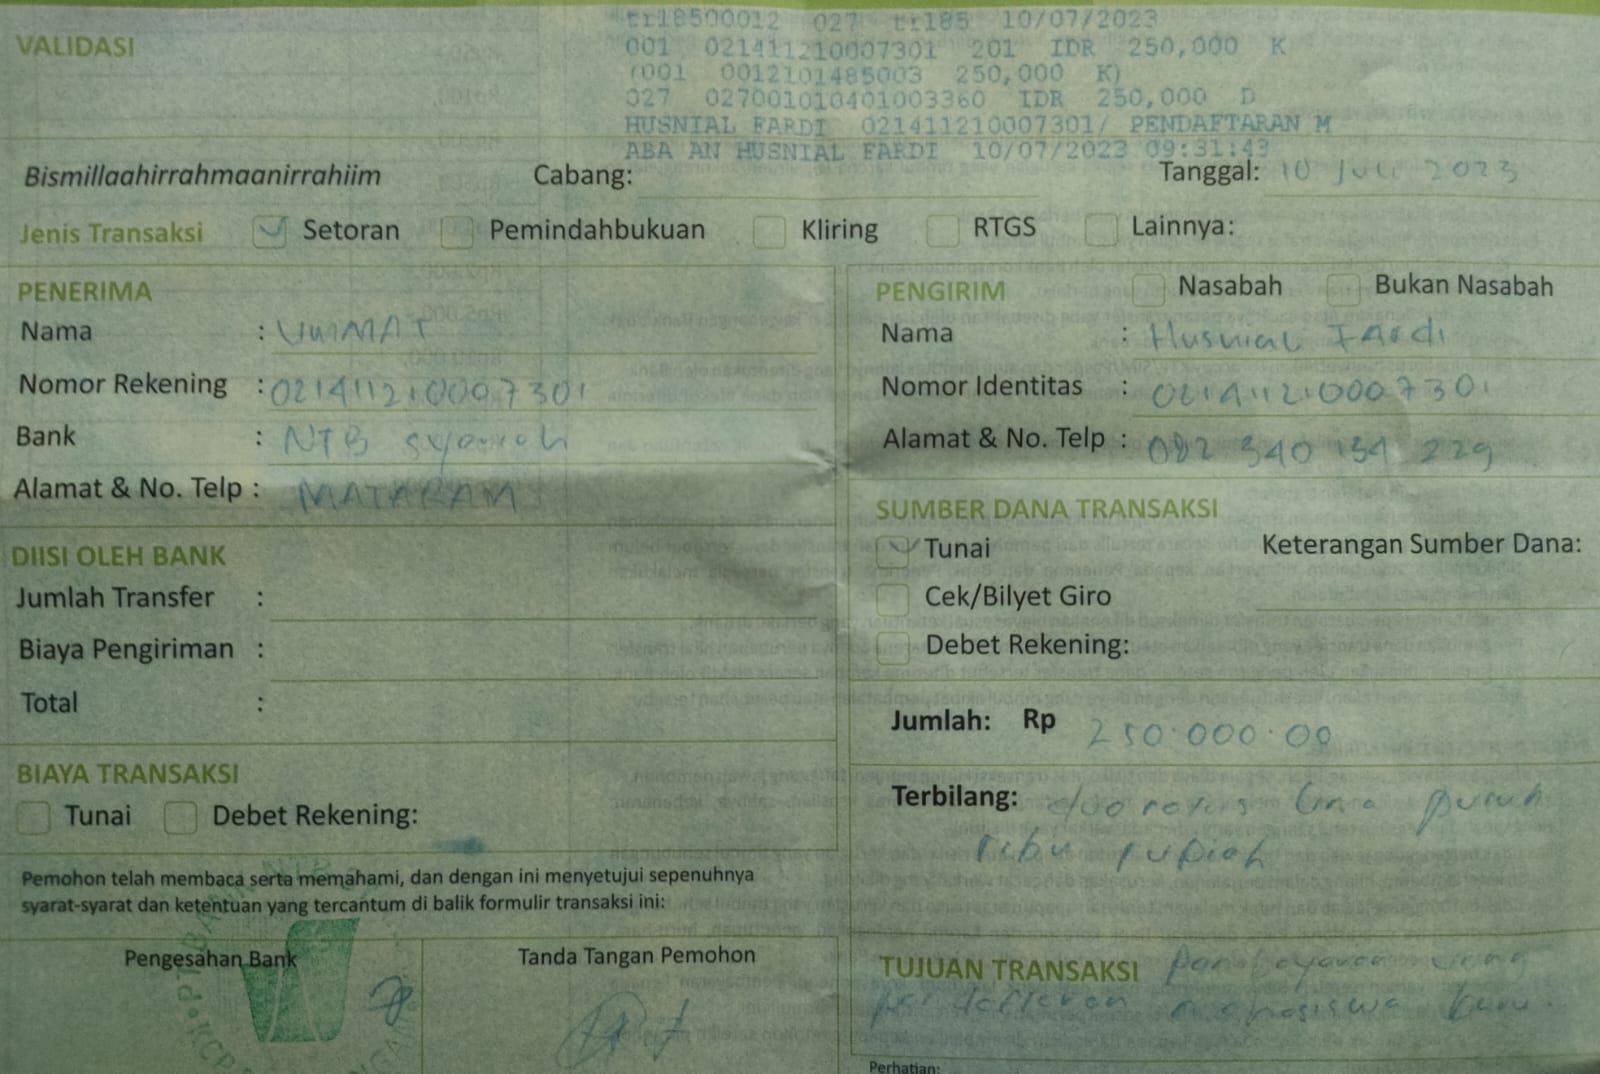 tr18500012 027 tr185 10/07/2023
001 021411210007301 201 IDR 250,000 K
(001 0012101485003 250,000 K)
027 027001010401003360 IDR 250,000 D
HUSNIAL FARDI 021411210007301/ PENDAFTARAN M
ABA AN HUSNIAL FARDI 10/07/2023 09:31:43
VALIDASI
Bismillaahirrahmaanirrahiim Cabang: Tanggal: 10 Juli 2023
Jenis Transaksi Setoran Pemindahbukuan Kliring RTGS Lainnya:
PENERIMA
Nama : UMMAT
Nomor Rekening : 021411210007301
Bank : NTB syariah
Alamat & No. Telp : MATARAM
DIISI OLEH BANK
Jumlah Transfer :
Biaya Pengiriman :
Total :
BIAYA TRANSAKSI
Tunai Debet Rekening:
Pemohon telah membaca serta memahami, dan dengan ini menyetujui sepenuhnya
syarat-syarat dan ketentuan yang tercantum di balik formulir transaksi ini:
Pengesahan Bank Tanda Tangan Pemohon
PENGIRIM Nasabah Bukan Nasabah
Nama : Husnial Fardi
Nomor Identitas : 021411210007301
Alamat & No. Telp : 082 340 134 229
SUMBER DANA TRANSAKSI
Tunai Keterangan Sumber Dana:
Cek/Bilyet Giro
Debet Rekening:
Jumlah: Rp 250.000.00
Terbilang: duo ratus lima puluh
ribu rupiah
TUJUAN TRANSAKSI pembayaran uang
pendaftaran mahasiswa baru.
Perhatian: